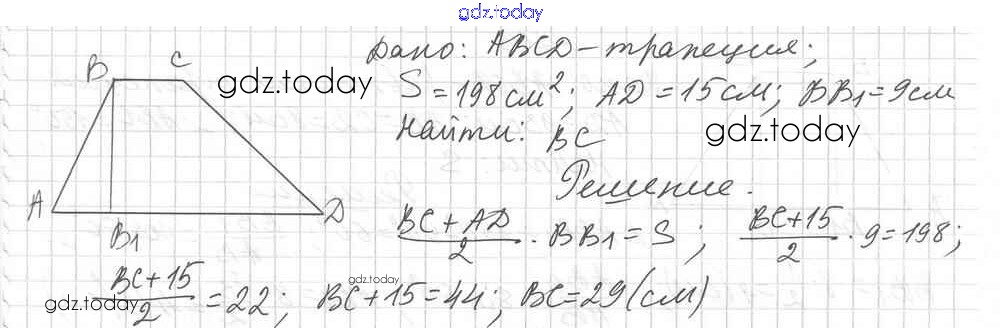 gdz.today
Дано: ABCD - трапеция;
S = 198 см²; AD = 15 см; BB₁ = 9 см
gdz.today
Найти: BC
gdz.today
B C
A B₁ D
Решение.
(BC + AD)/2 · BB₁ = S; (BC + 15)/2 · 9 = 198;
(BC + 15)/2 = 22; BC + 15 = 44; BC = 29 (см)
gdz.today
gdz.today